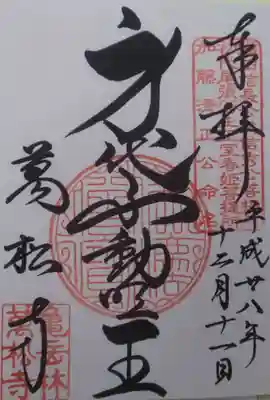 奉拝
平成廿八年
十二月十一日
加藤清正公命名
身代不動明王
萬松寺
亀岳林
萬松寺